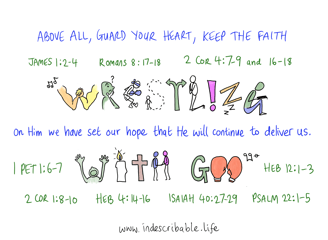 ABOVE ALL, GUARD YOUR HEART, KEEP THE FAITH
JAMES 1:2-4 ROMANS 8:17-18 2 COR 4:7-9 and 16-18
WRESTL!NG
On Him we have set our hope that He will continue to deliver us.
1 PET 1:6-7 WITH GOD HEB 12:1-3
2 COR 1:8-10 HEB 4:14-16 ISAIAH 40:27-29 PSALM 22:1-5
www.indescribable.life